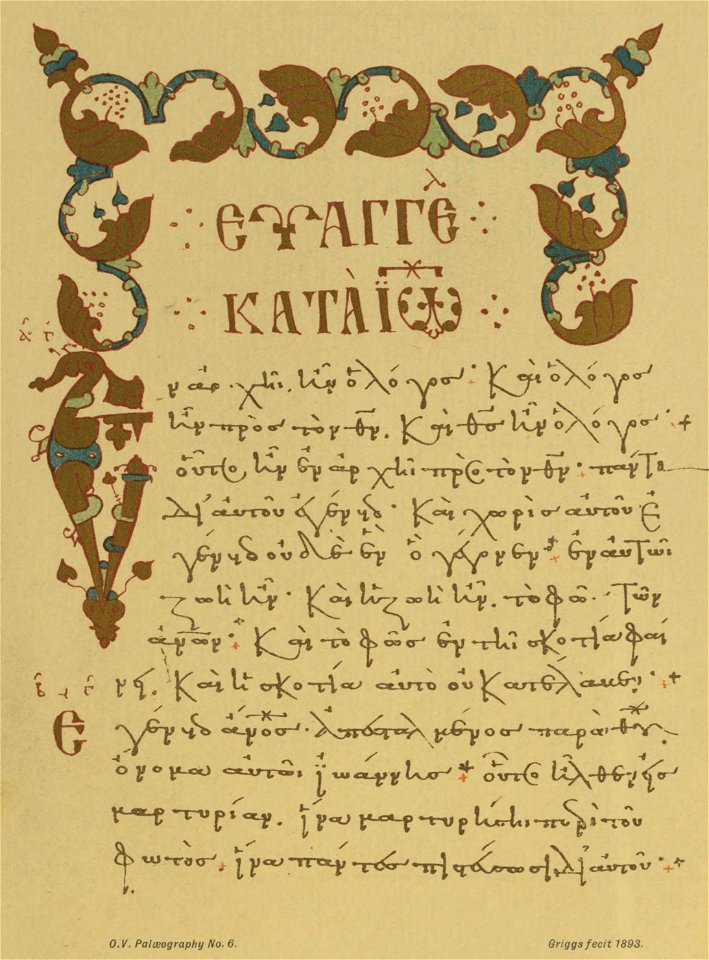 ΕΥΑΓΓῈλ
ΚΑΤᾺ ΪΩ
α ζ
ν ἀρχῆι, ἦν ὁ λόγος + Καὶ ὁ λόγος
ἦν πρὸς τὸν θν. Καὶ θς ἦν ὁ λόγος · +
οὗτος ἦν ἐν ἀρχῆι πρὸς τὸν θν · πάντα
δι' αὐτοῦ ἐγένετο · Καὶ χωρὶς αὐτοῦ ἐ
γένετο οὐδὲ ἓν ὃ γέγονεν · + ἐν αὐτῶι
ζωὴ ἦν · Καὶ ἡ ζωὴ ἦν, τὸ φῶς · τῶν
ἀνων · + Καὶ τὸ φῶς ἐν τῆι σκοτία φαί
νει. Καὶ ἡ σκοτία αὐτὸ οὐ κατέλαβεν · +
Ε γένετο ἄνος · ἀπεσταλμένος παρὰ θυ.
ὄνομα αὐτῶι ἰωάννης + οὗτος ἦλθεν εἰς
μαρτυρίαν. ἵνα μαρτυρήσηι περὶ τοῦ
φωτός. + ἵνα πάντες πιστεύσωσι δι' αὐτοῦ · +
O.V. Palæography No. 6.
Griggs fecit 1893.